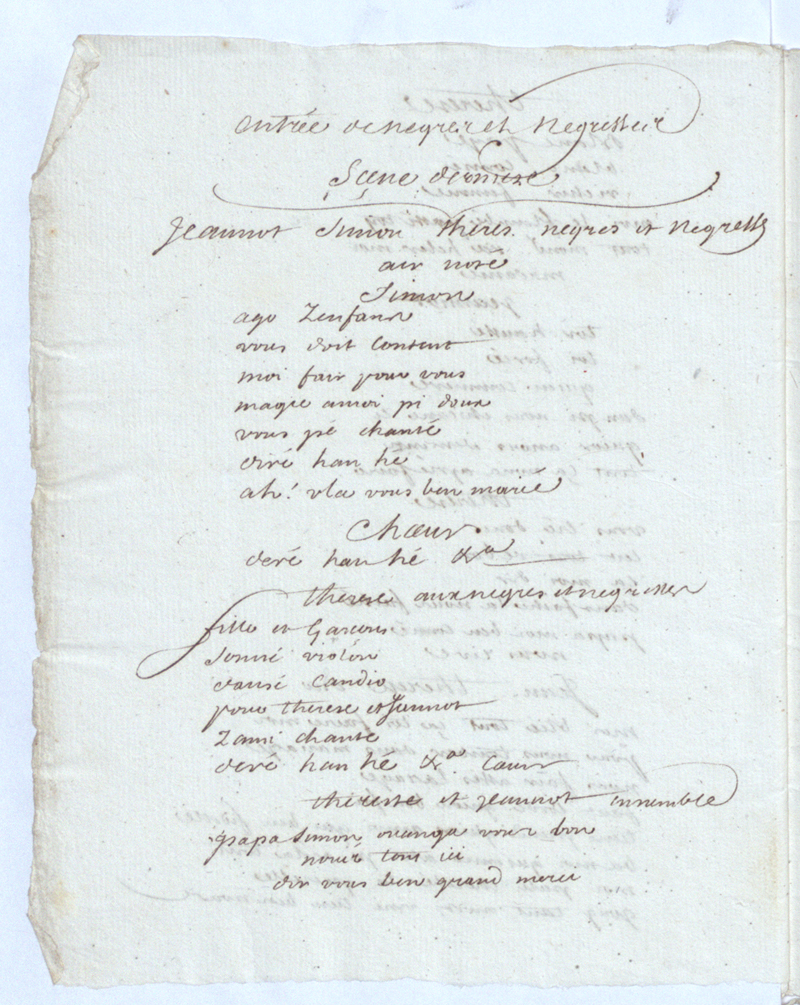 entrée de negres et Negresses
Scene derniere
Jeannot Simon theres. negres et Negresses
air noté
Simon
ago Zenfans
vous doit Content
moi fair pour vous
magie amoi pi doux
vous pé chanté
diré han hé
ah! vla vous ben marié
Choeur
deré han hé &a
therese aux negres et negresses
fille et Garçons
Sonné violon
dansé Candio
pour therese et Jeannot
Zami chanté
deré han hé &a. Coeur
therese et Jeannot ensemble
papa Simon ouanga vous bon
nous tous ici
dir vous ben grand merci